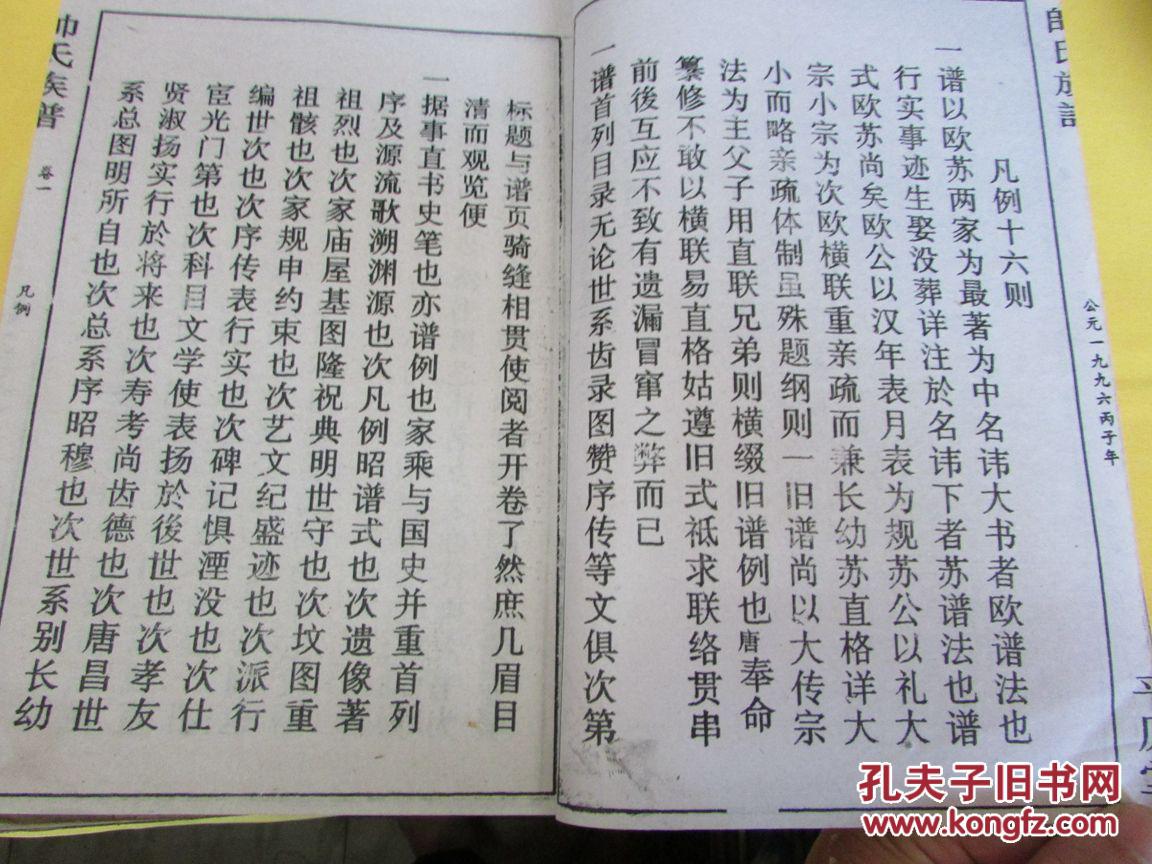 公元一九九六丙子年
凡例十六则
一谱以欧苏两家为最著为中名讳大书者欧谱法也
行实事迹生娶没葬详注於名讳下者苏谱法也谱
式欧苏尚矣欧公以汉年表月表为规苏公以礼大
宗小宗为次欧横联重亲疏而兼长幼苏直格详大
小而略亲疏体制虽殊题纲则一旧谱尚以大传宗
法为主父子用直联兄弟则横缀旧谱例也唐奉命
纂修不敢以横联易直格姑遵旧式祗求联络贯串
前後互应不致有遗漏冒窜之弊而已
一谱首列目录无论世系齿录图赞序传等文俱次第
标题与谱页骑缝相贯使阅者开卷了然庶几眉目
清而观览便
一据事直书史笔也亦谱例也家乘与国史并重首列
序及源流歌溯渊源也次凡例昭谱式也次遗像著
祖烈也次家庙屋基图隆祝典明世守也次坟图重
祖骸也次家规申约束也次艺文纪盛迹也次派行
编世次也次序传表行实也次碑记惧湮没也次仕
宦光门第也次科目文学使表扬於後世也次孝友
贤淑扬实行於将来也次寿考尚齿德也次唐昌世
系总图明所自也次总系序昭穆也次世系别长幼
帅氏族普
卷一
凡例
孔夫子旧书网
www.kongfz.com